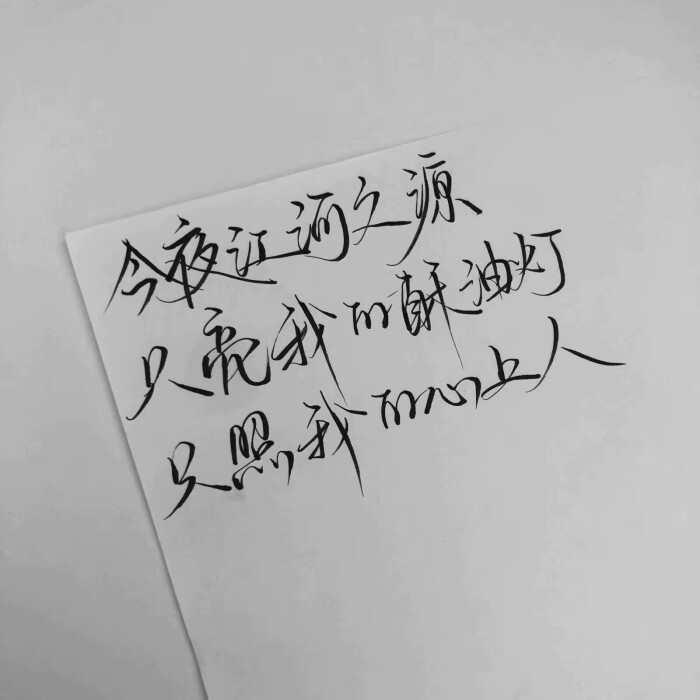 今夜江河之源
只亮我的酥油灯
只照我的心上人